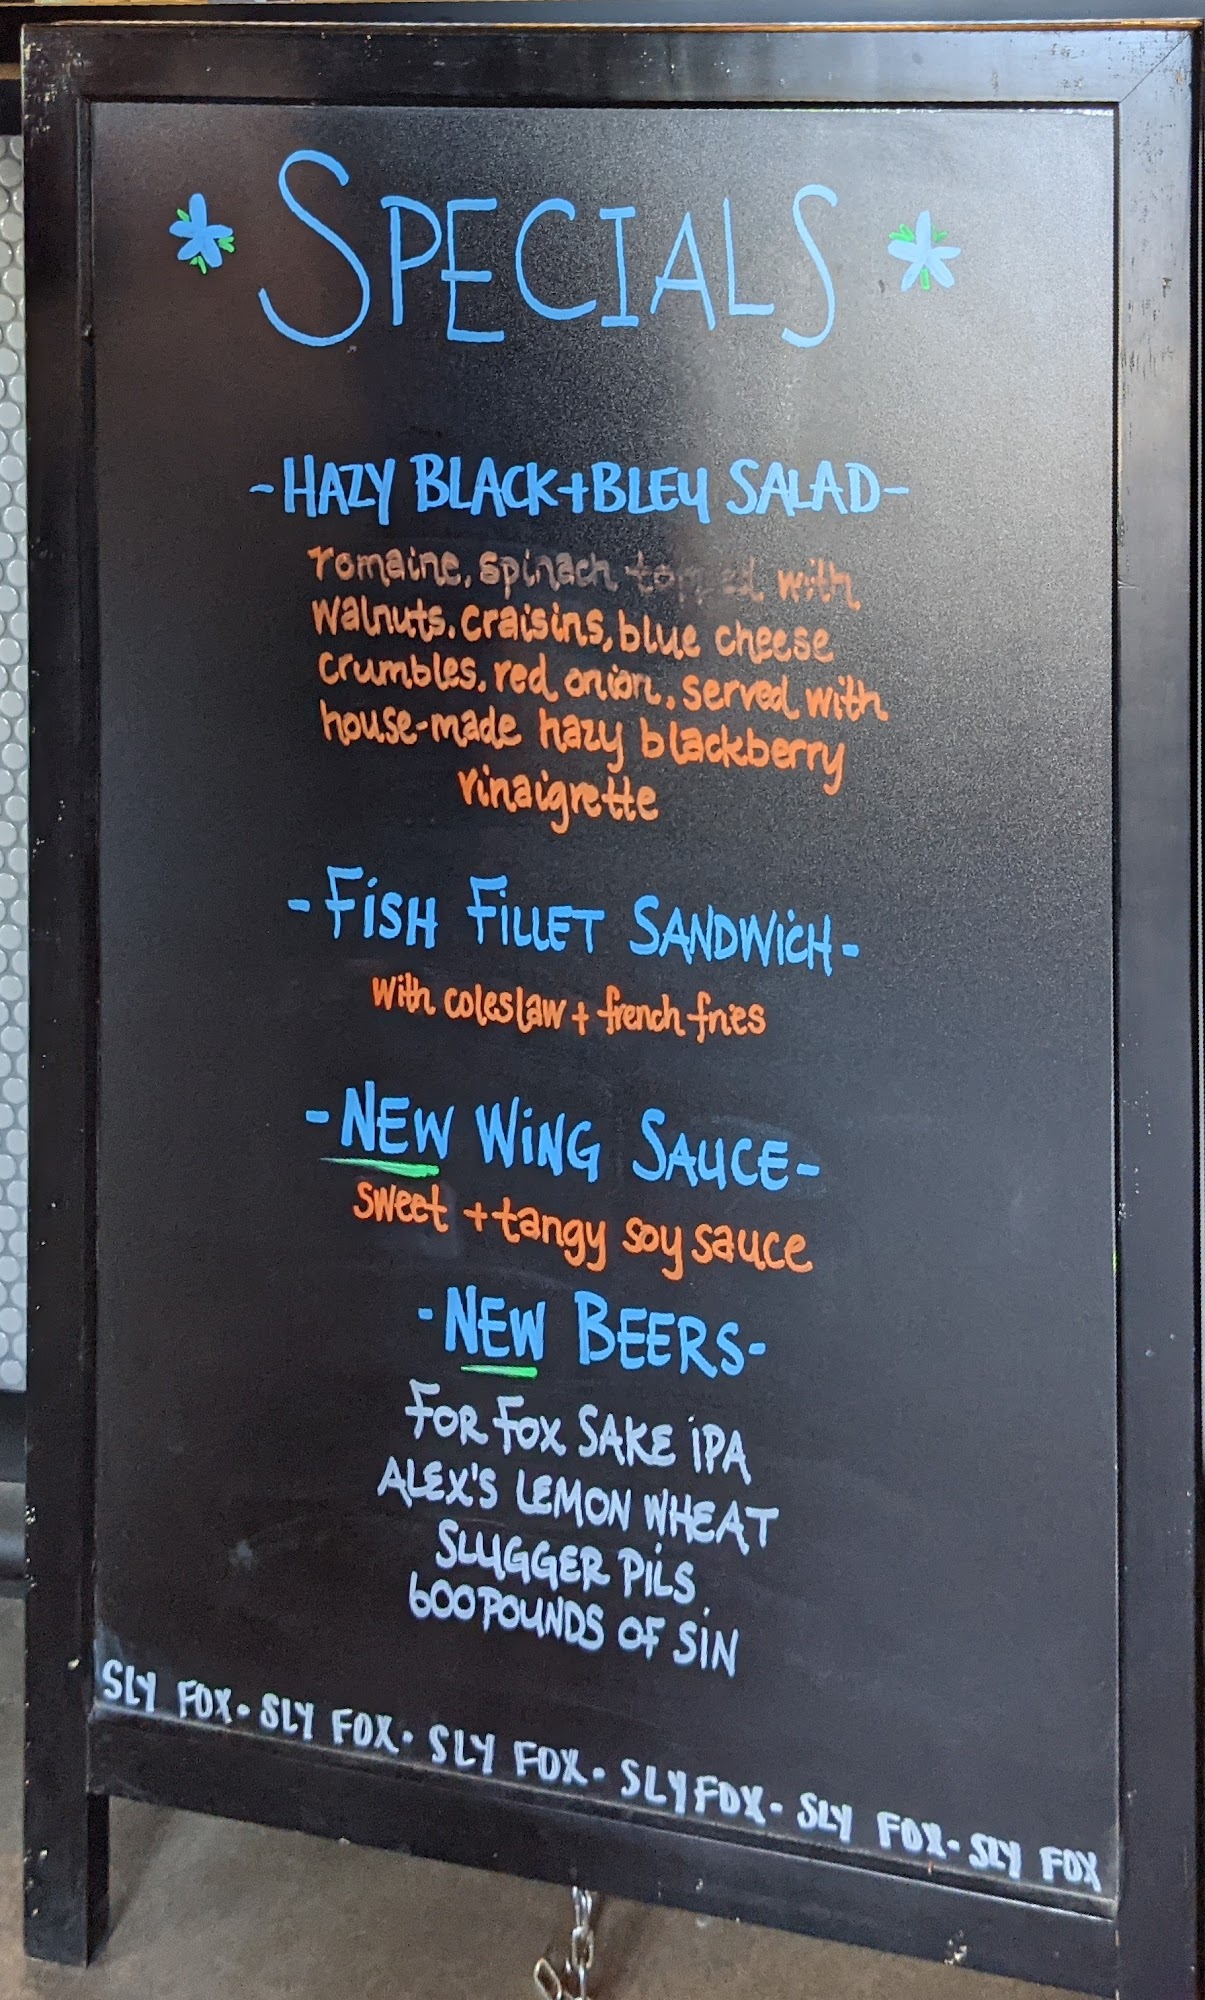 SPECIALS
-HAZY BLACK+BLEU SALAD-
romaine, spinach topped with
walnuts, craisins, blue cheese
crumbles, red onion, served with
house-made hazy blackberry
vinaigrette
-FiSH FiLLET SANDWiCH-
with coleslaw + french fries
-NEW WiNG SAUCE-
sweet + tangy soy sauce
-NEW BEERS-
FOR FOX SAKE iPA
ALEX'S LEMON WHEAT
SLUGGER PiLS
600 POUNDS OF SiN
SLY FOX - SLY FOX - SLY FOX - SLY FOX - SLY FOX - SLY FOX